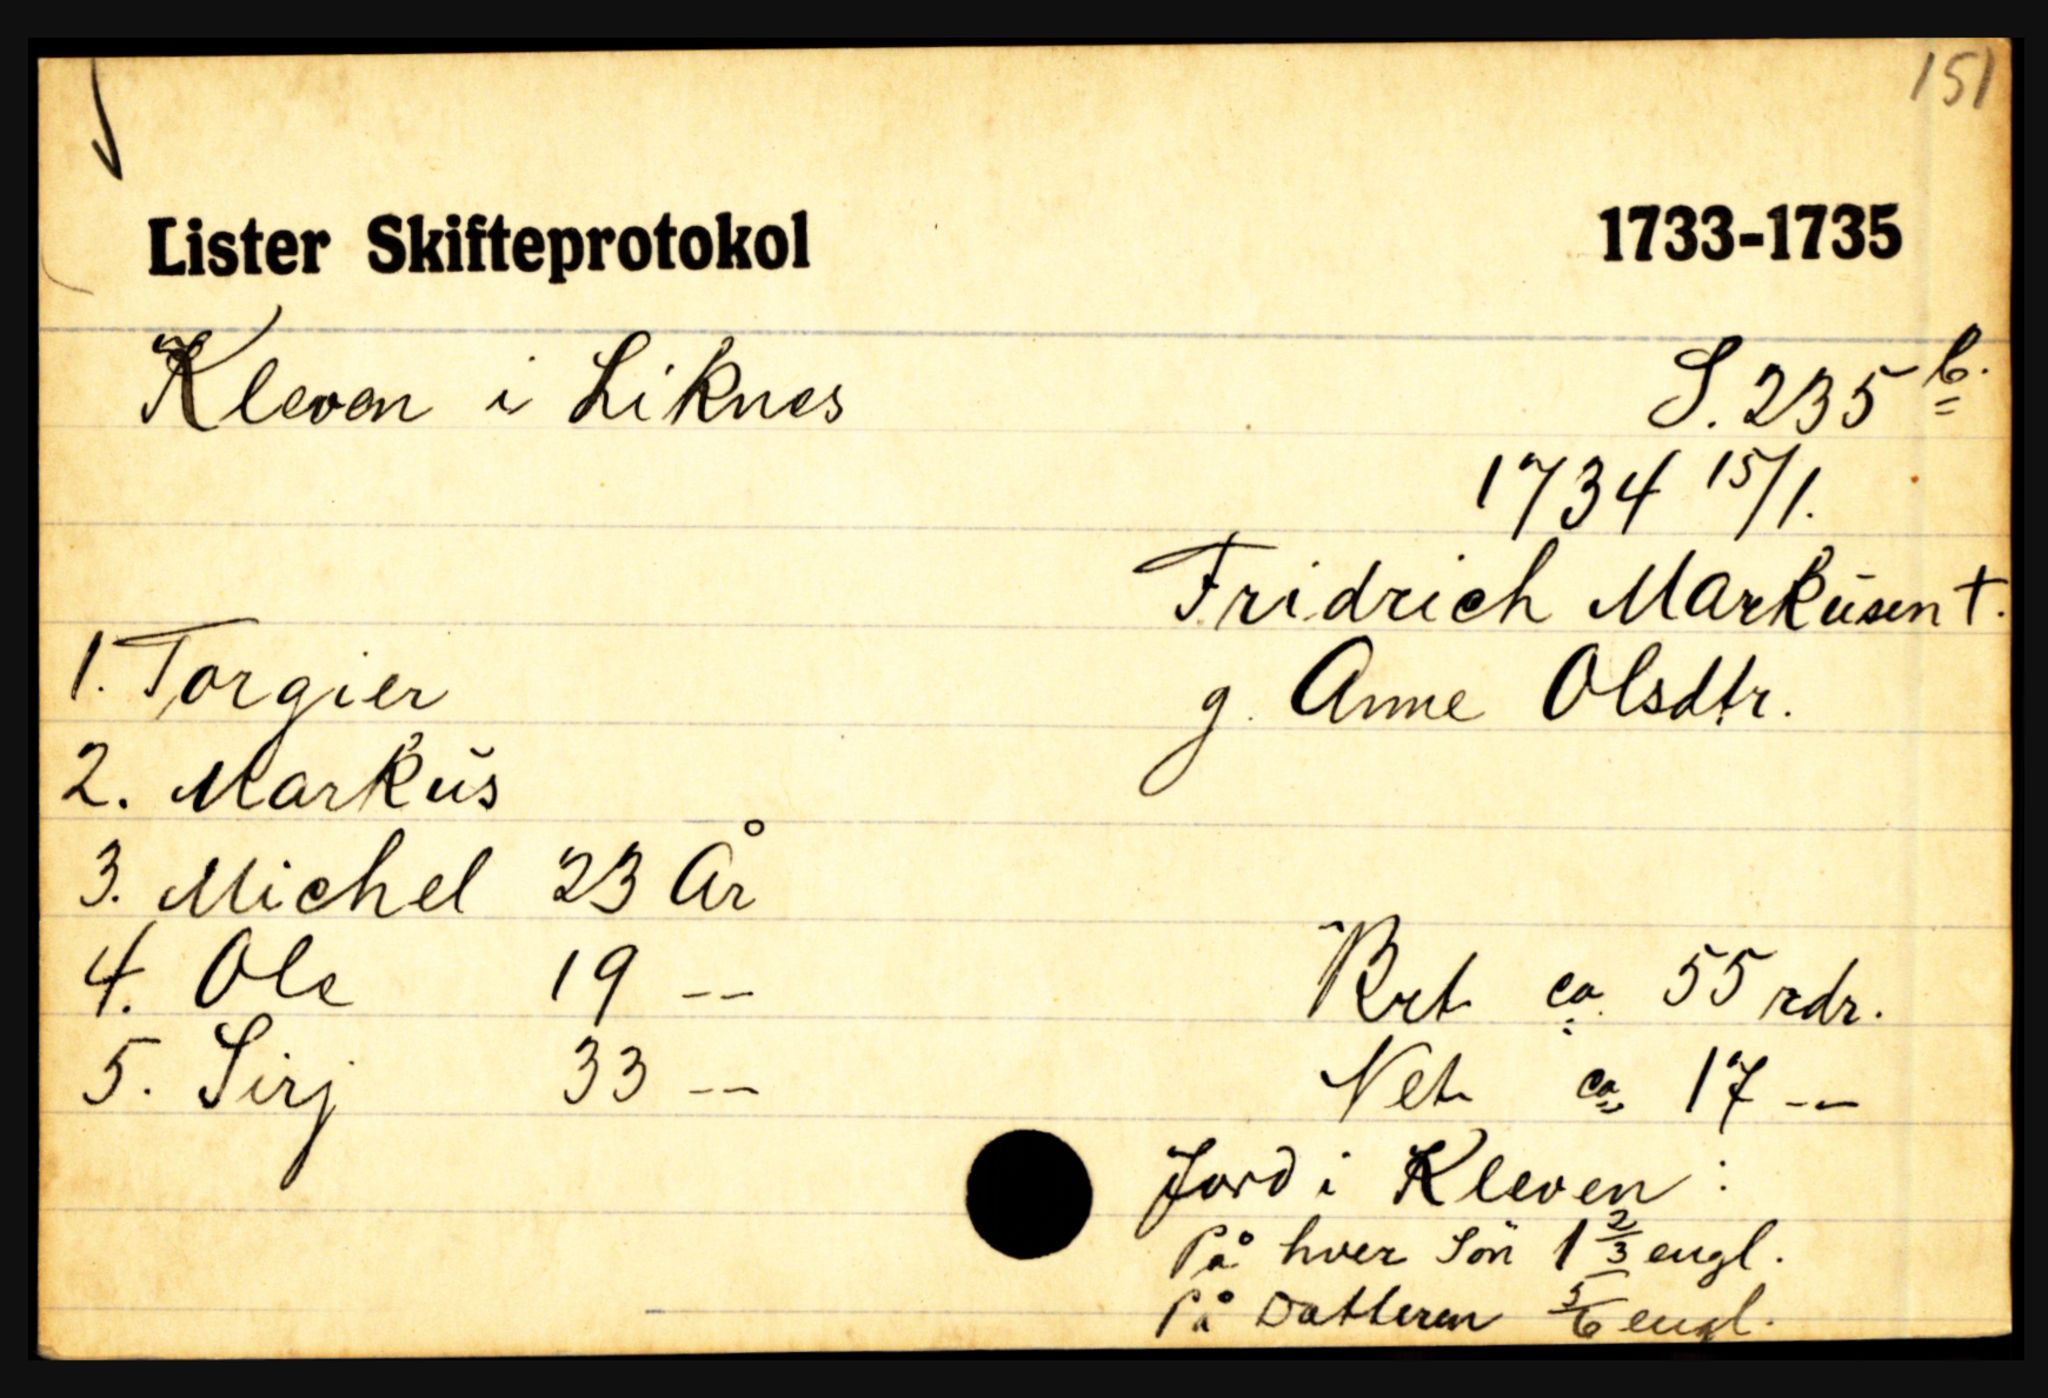 151
Lister Skifteprotokol 1733-1735
Kleven i Liknes S. 235 b.
1734 15/1.
Fridrich Markŭsen †.
g. Anne Olsdtr.
1. Torgier
2. Markŭs
3. Michel 23 År
4. Ole 19 --
5. Sirj 33 --
Brt ca. 55 rdr.
Net ca. 17 --
Jord i Kleven :
På hver Sön 1 2/3 engl.
På Datteren 5/6 engl.